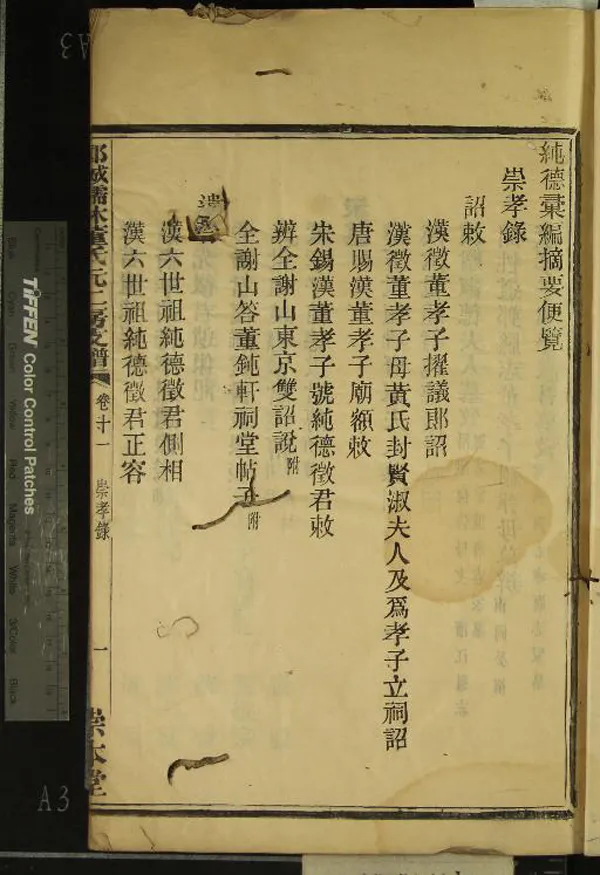 純德彙編摘要便覽
崇孝錄
詔敕
漢徵董孝子擢議郎詔
漢徵董孝子母黃氏封賢淑夫人及爲孝子立祠詔
唐賜漢董孝子廟額敕
宋錫漢董孝子號純德徵君敕
辨全謝山東京雙詔說附
全謝山答董鈍軒祠堂帖子附
遺
漢六世祖純德徵君側相
漢六世祖純德徵君正容
卷廿一
崇孝錄
一
崇本堂
TIFFEN Color Control Patches
Blue
Cyan
Green
Yellow
Red
Magenta
White
3/Color
Black
A3
A3